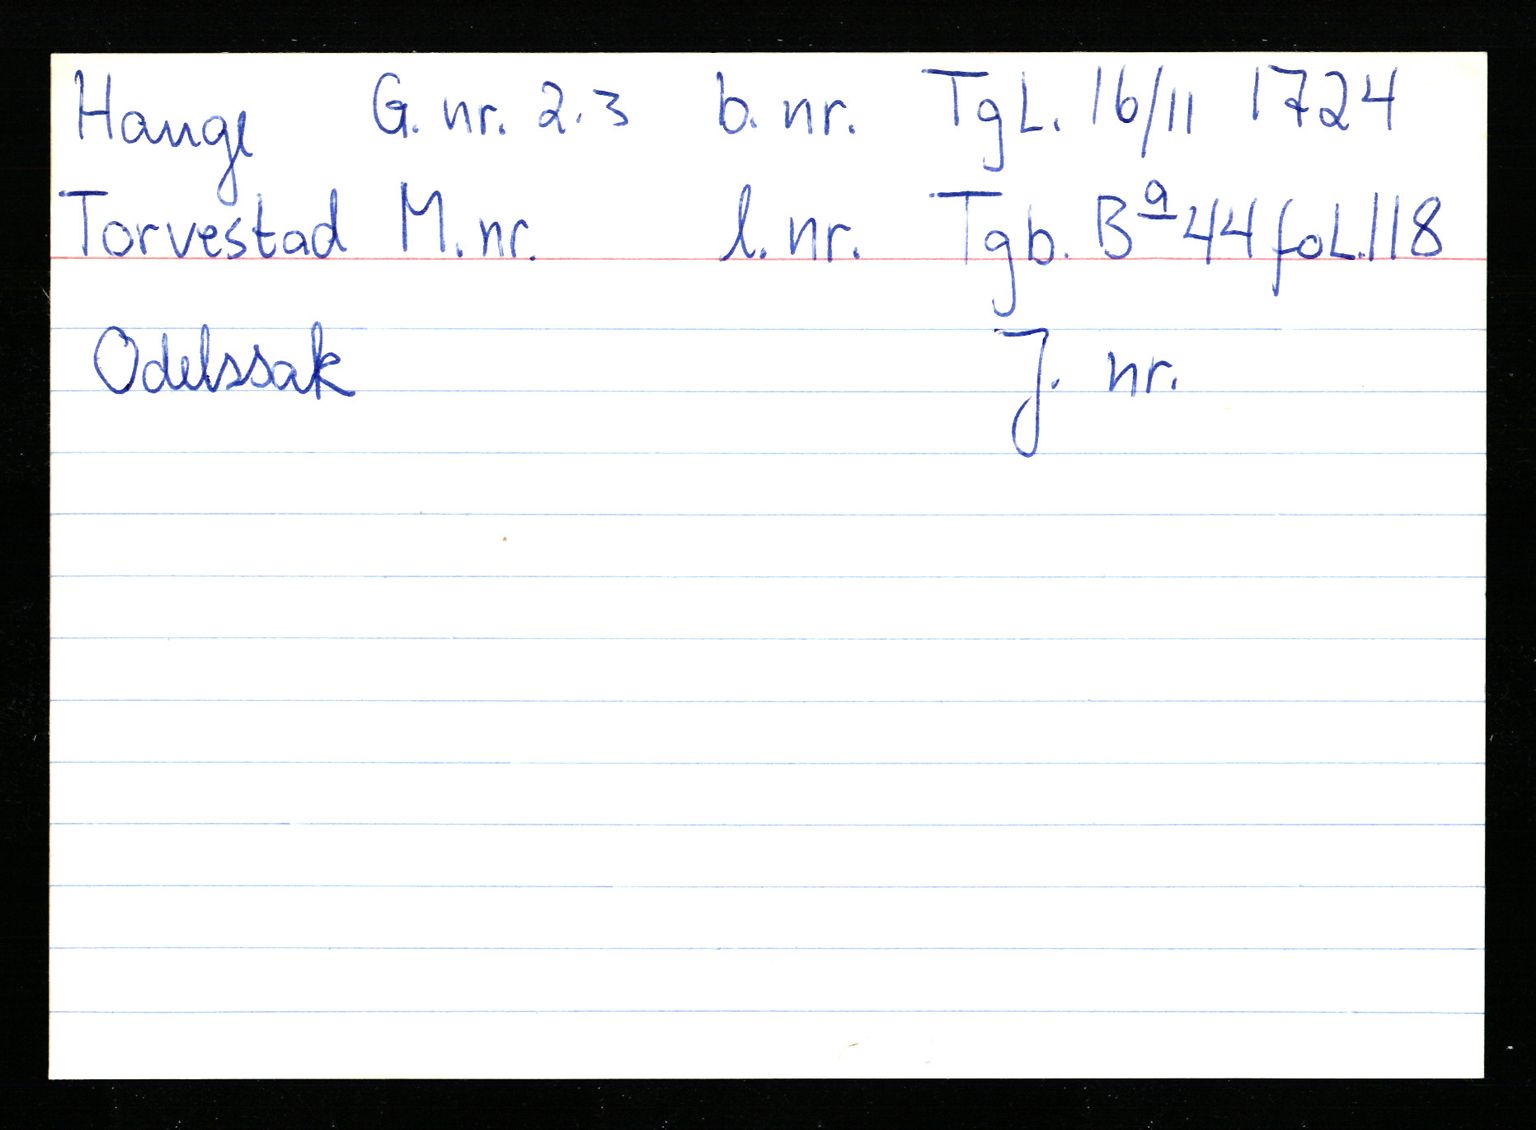 Hauge G. nr. 2.3 b. nr. TgL. 16/11 1724
Torvestad M. nr. l. nr. Tgb. Bª 44 foL. 118
Odelssak J. nr.